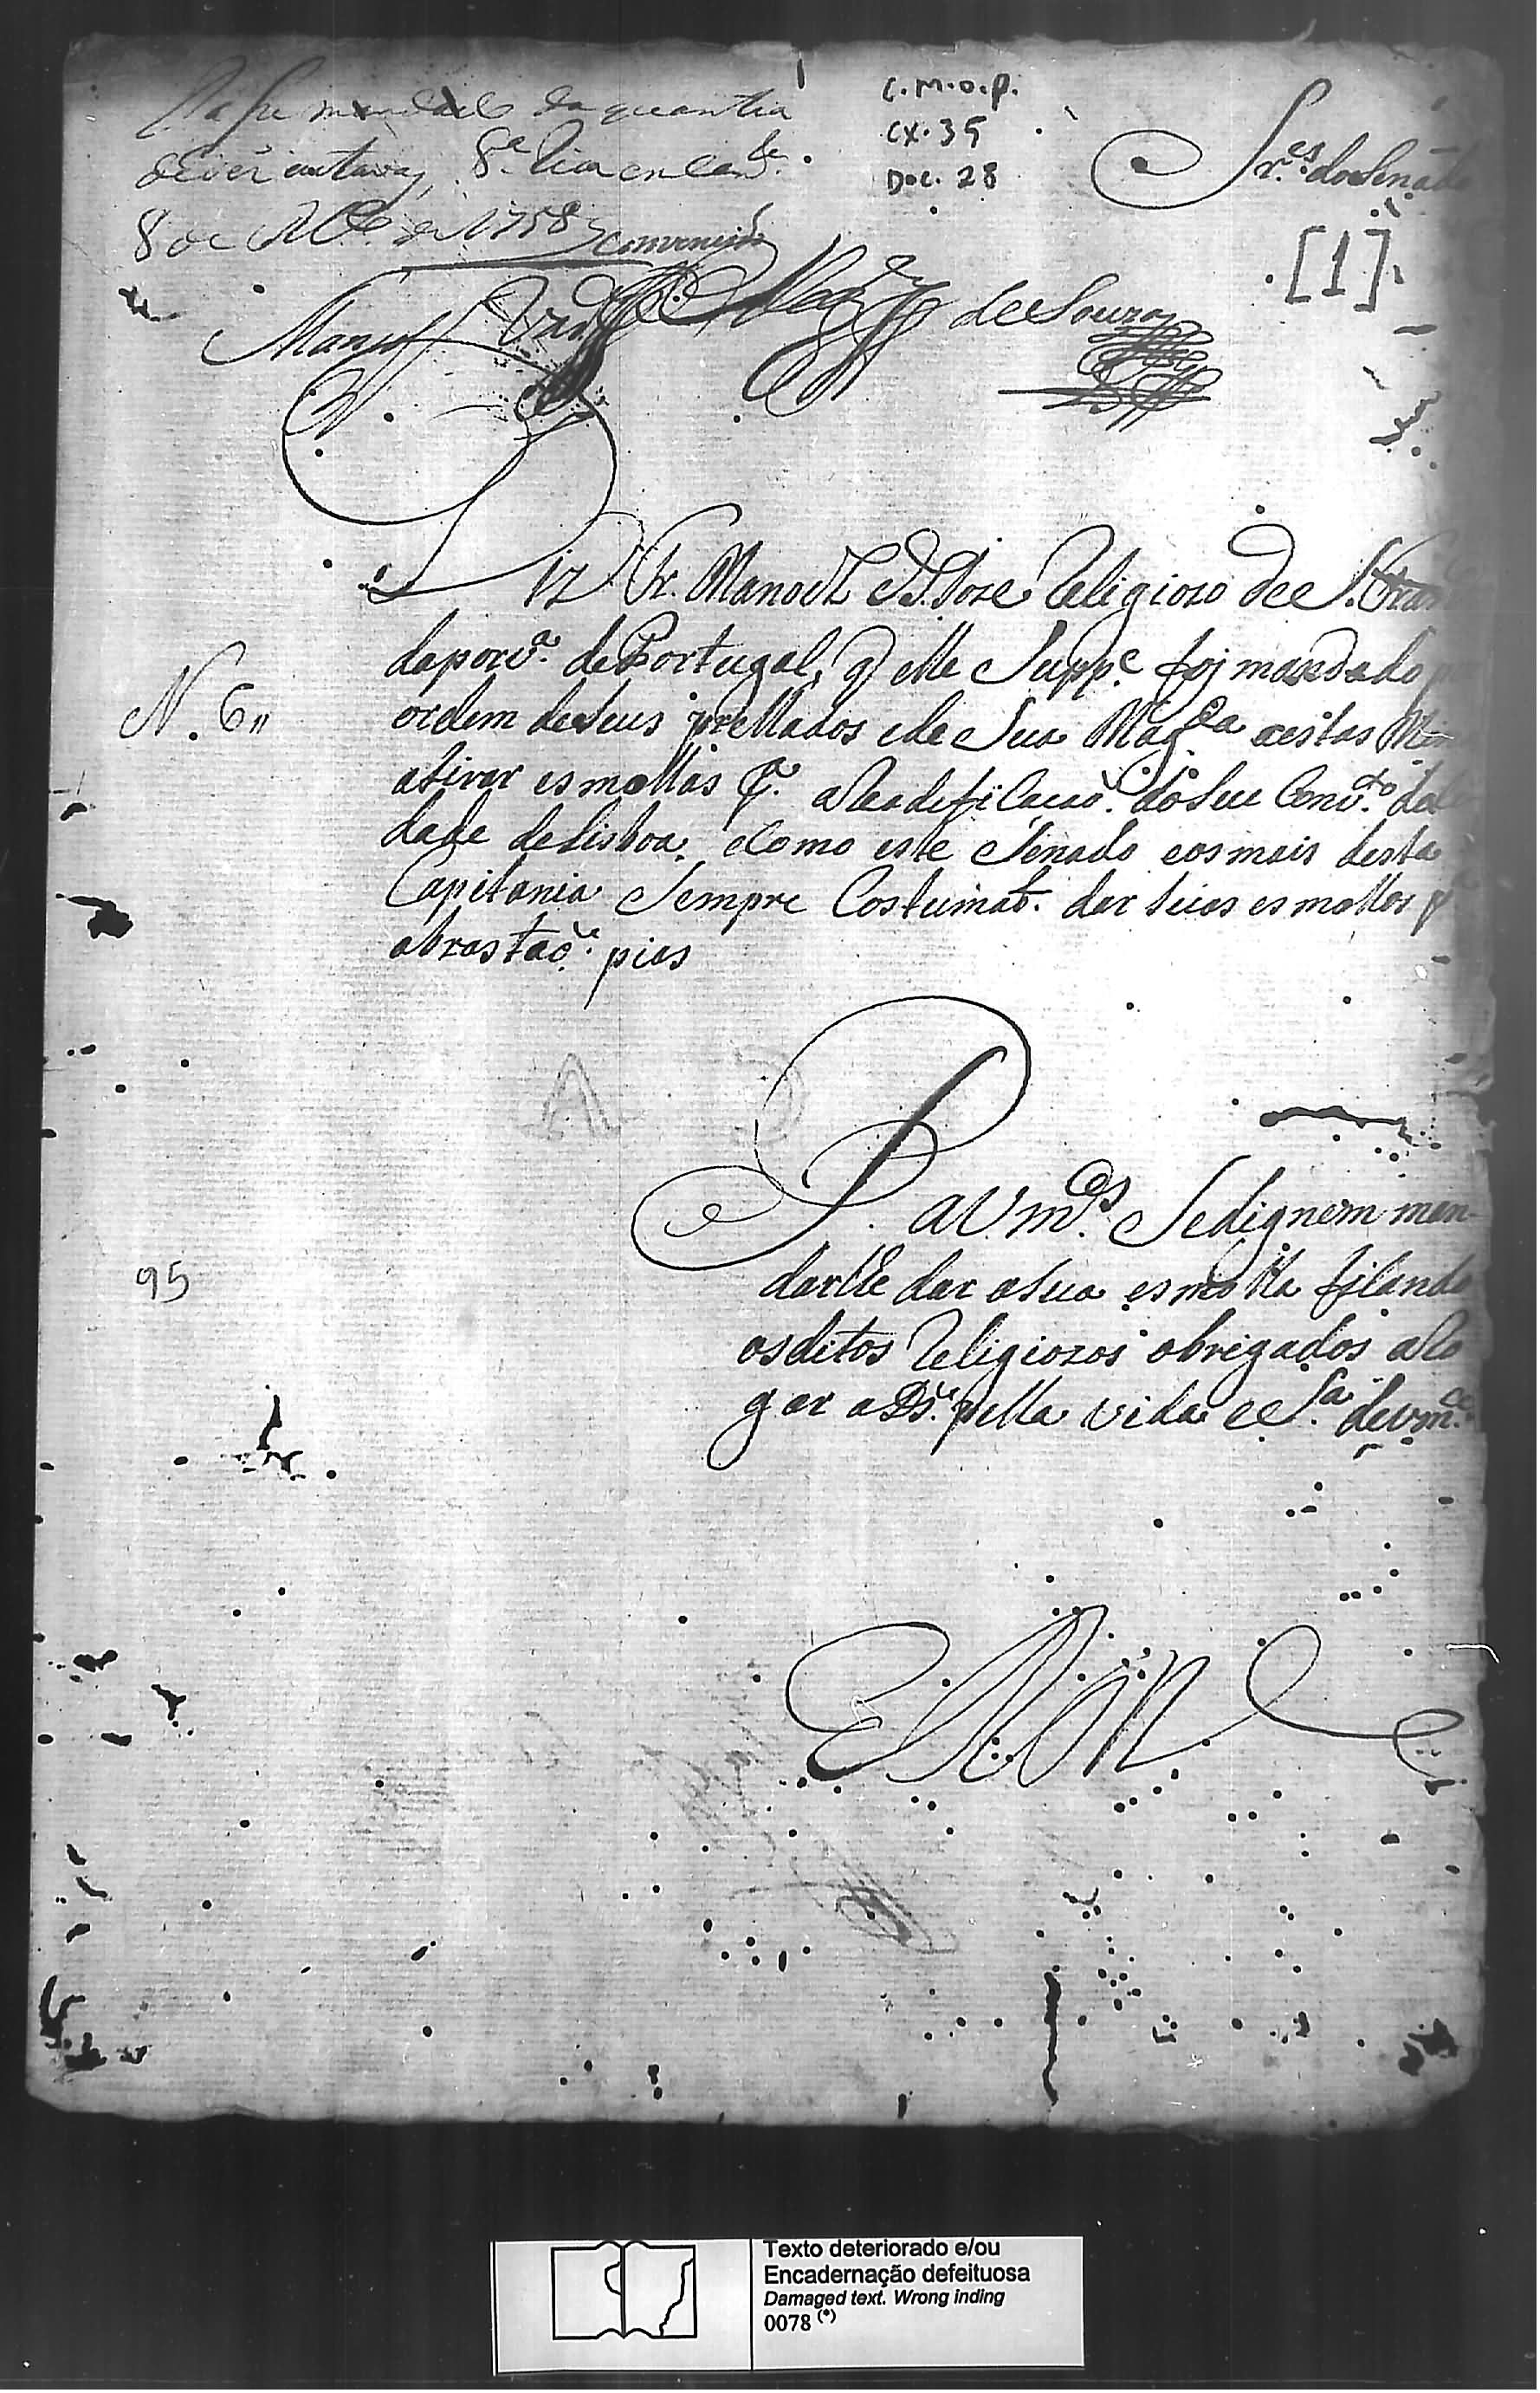 da quantia
de oitavas
8 de de 1758
C.M.O.P.
CX. 35
Doc. 28
Sr.es do Senado
[1]
Manuel de Souza
Diz Fr. Manoel de S. Joze Religiozo de S. Fran
da prov.a de Portugal, q elle Supp.e foi mandado p
ordem de seus prellados e de Sua Mag.da a estas Min
a tirar esmollas p.a a Readeficacaõ do seu Conv.to da
dade de Lisboa. e Como este Senado e os mais desta
Capitania Sempre Costumaõ dar suas esmollas p
obras taõ pias
N. 6
P. a V m.ces Se dignem man-
darlhe dar a sua esmolla ficando
os ditos Religiozos obrigados a Ro
gar a Ds. pella vida e S.a de Vm.ce
95
E R M
Texto deteriorado e/ou
Encadernação defeituosa
Damaged text. Wrong inding
0078 (*)